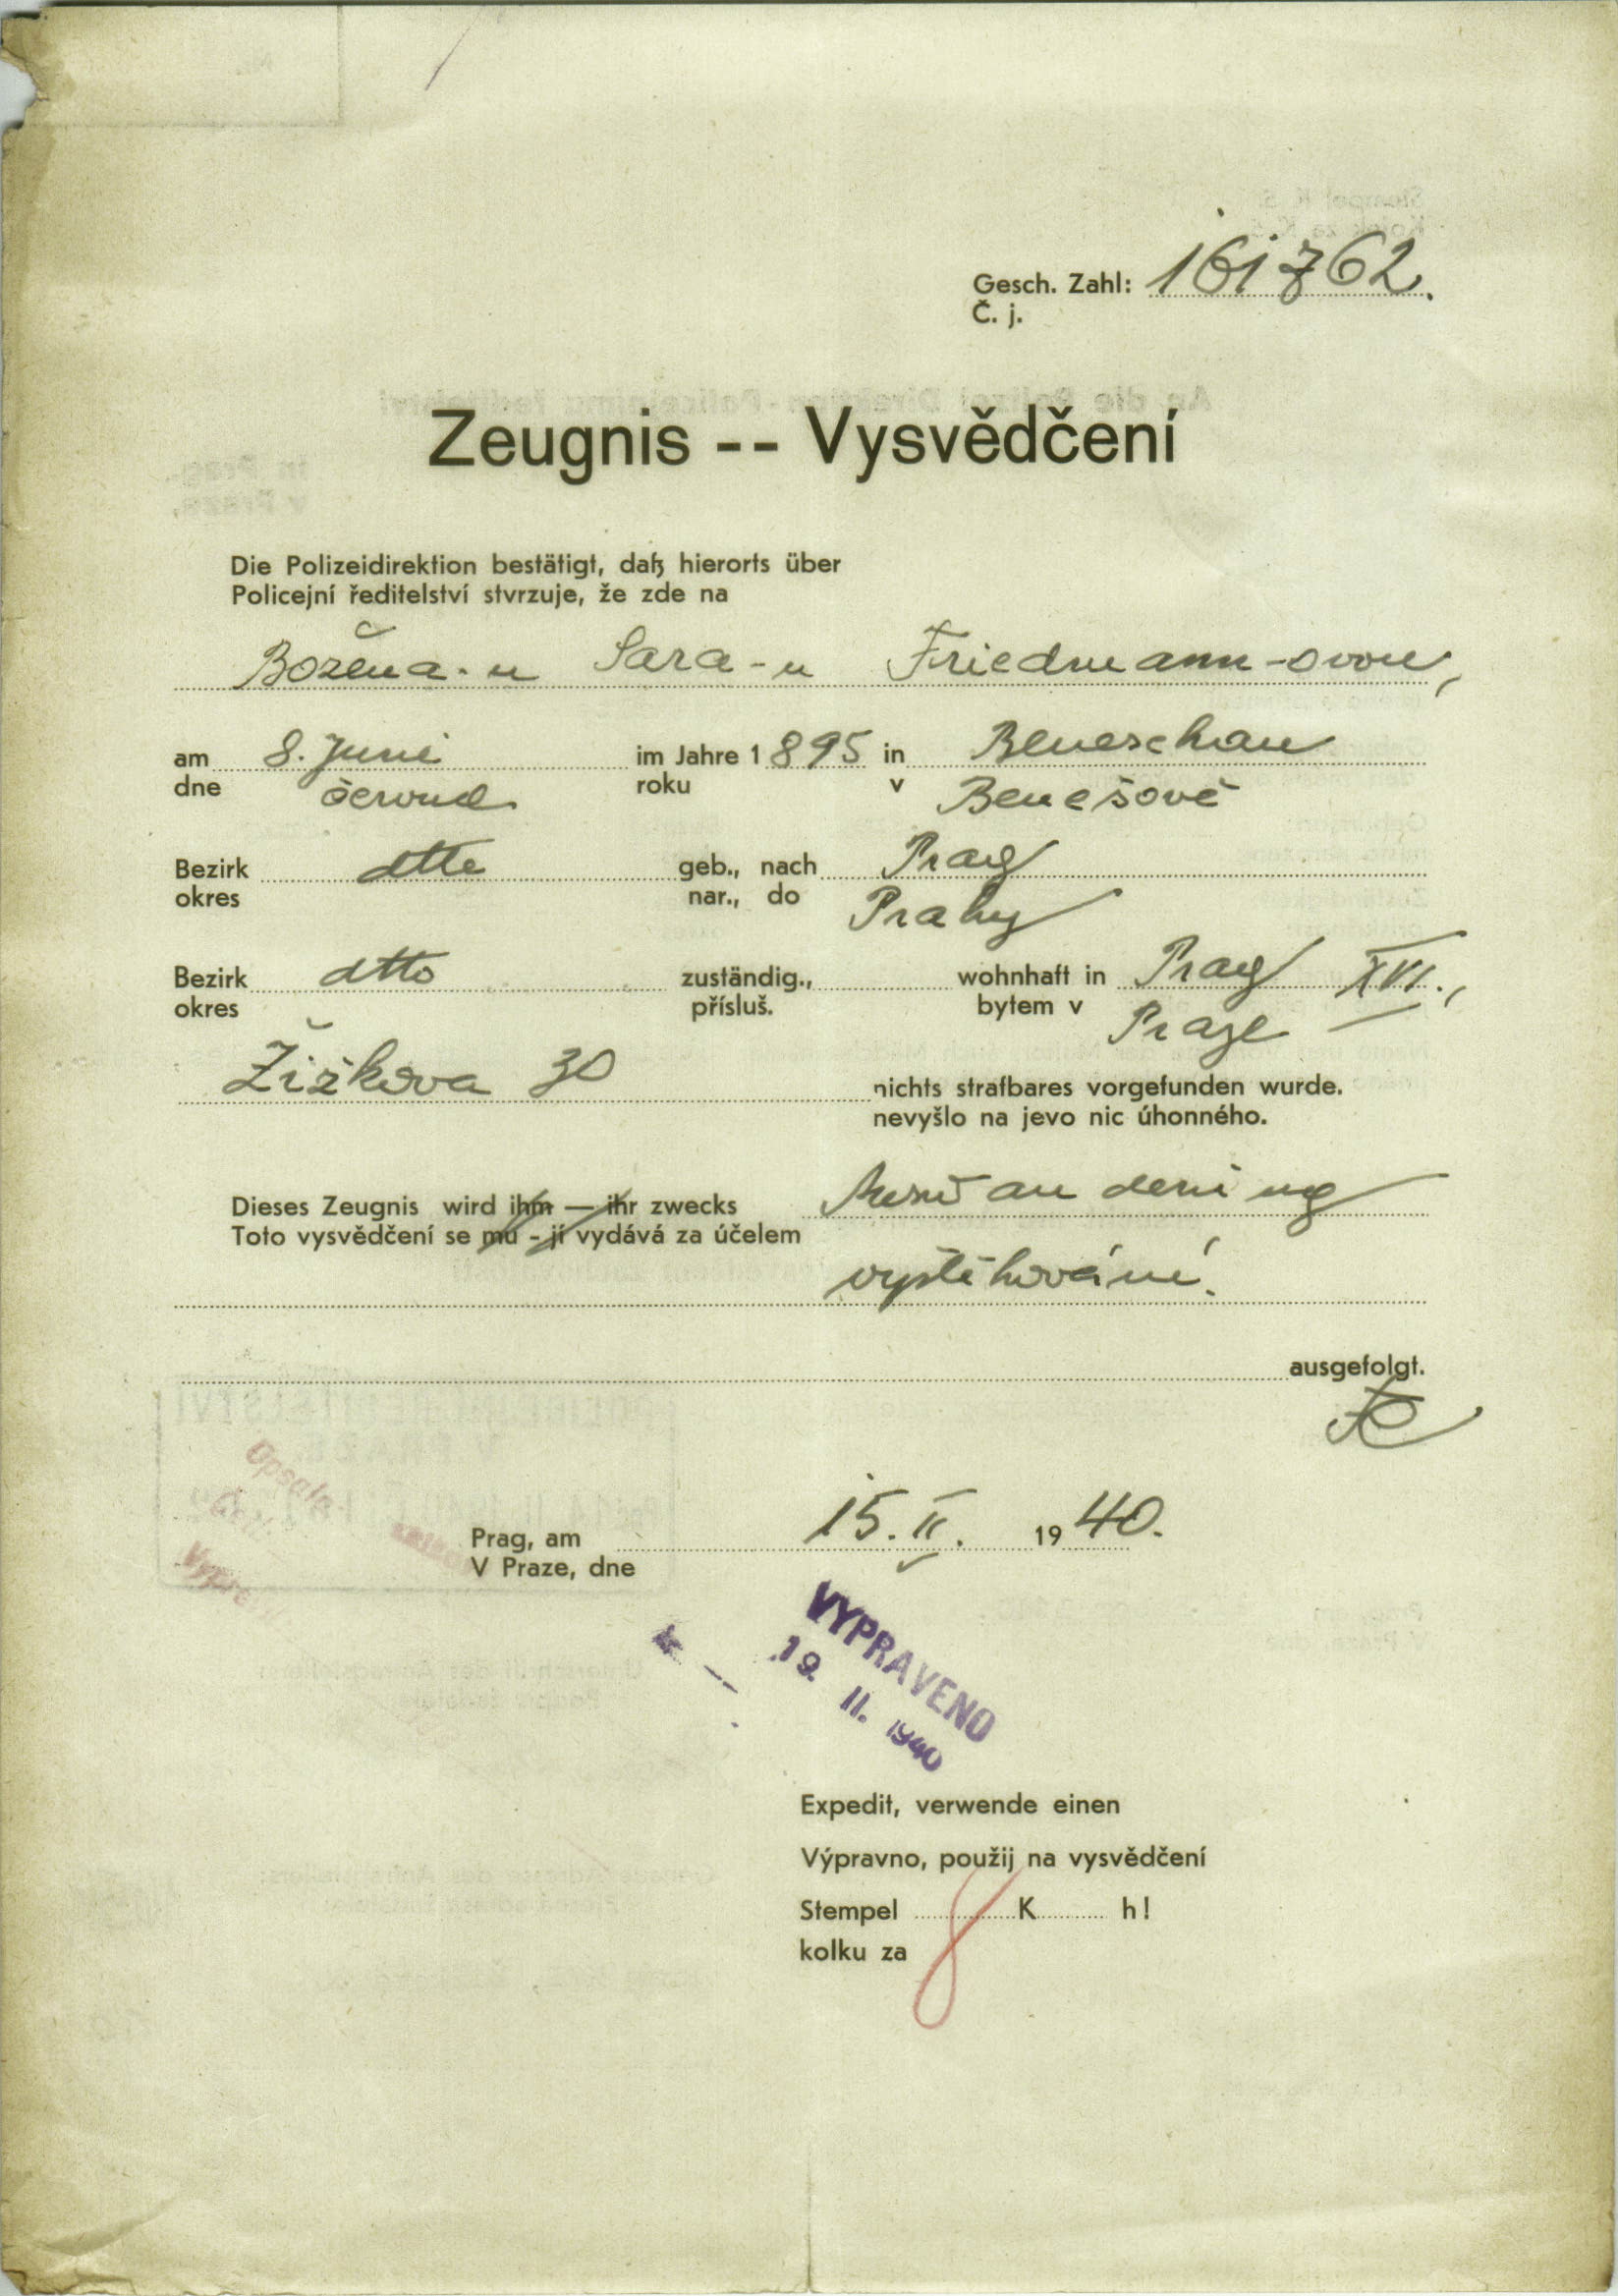 Gesch. Zahl: 161762.
Č. j.
Zeugnis -- Vysvědčení
Die Polizeidirektion bestätigt, daß hierorts über
Policejní ředitelství stvrzuje, že zde na
Božena-u Sara-u Friedmann-ovou,
am 8. Juni im Jahre 1 895 in Beneschau
dne června roku v Benešově
Bezirk dtto geb., nach Prag
okres nar., do Prahy
Bezirk dtto zuständig., wohnhaft in Prag XVI.,
okres přísluš. bytem v Praze
Žižkova 30 nichts strafbares vorgefunden wurde.
nevyšlo na jevo nic úhonného.
Dieses Zeugnis wird ihm — ihr zwecks
Toto vysvědčení se mu - jí vydává za účelem
vystěhování.
ausgefolgt.
Prag, am 15. II. 19 40.
V Praze, dne
VYPRAVENO
19. II. 1940
Expedit, verwende einen
Výpravno, použij na vysvědčení
Stempel 8 K h!
kolku za